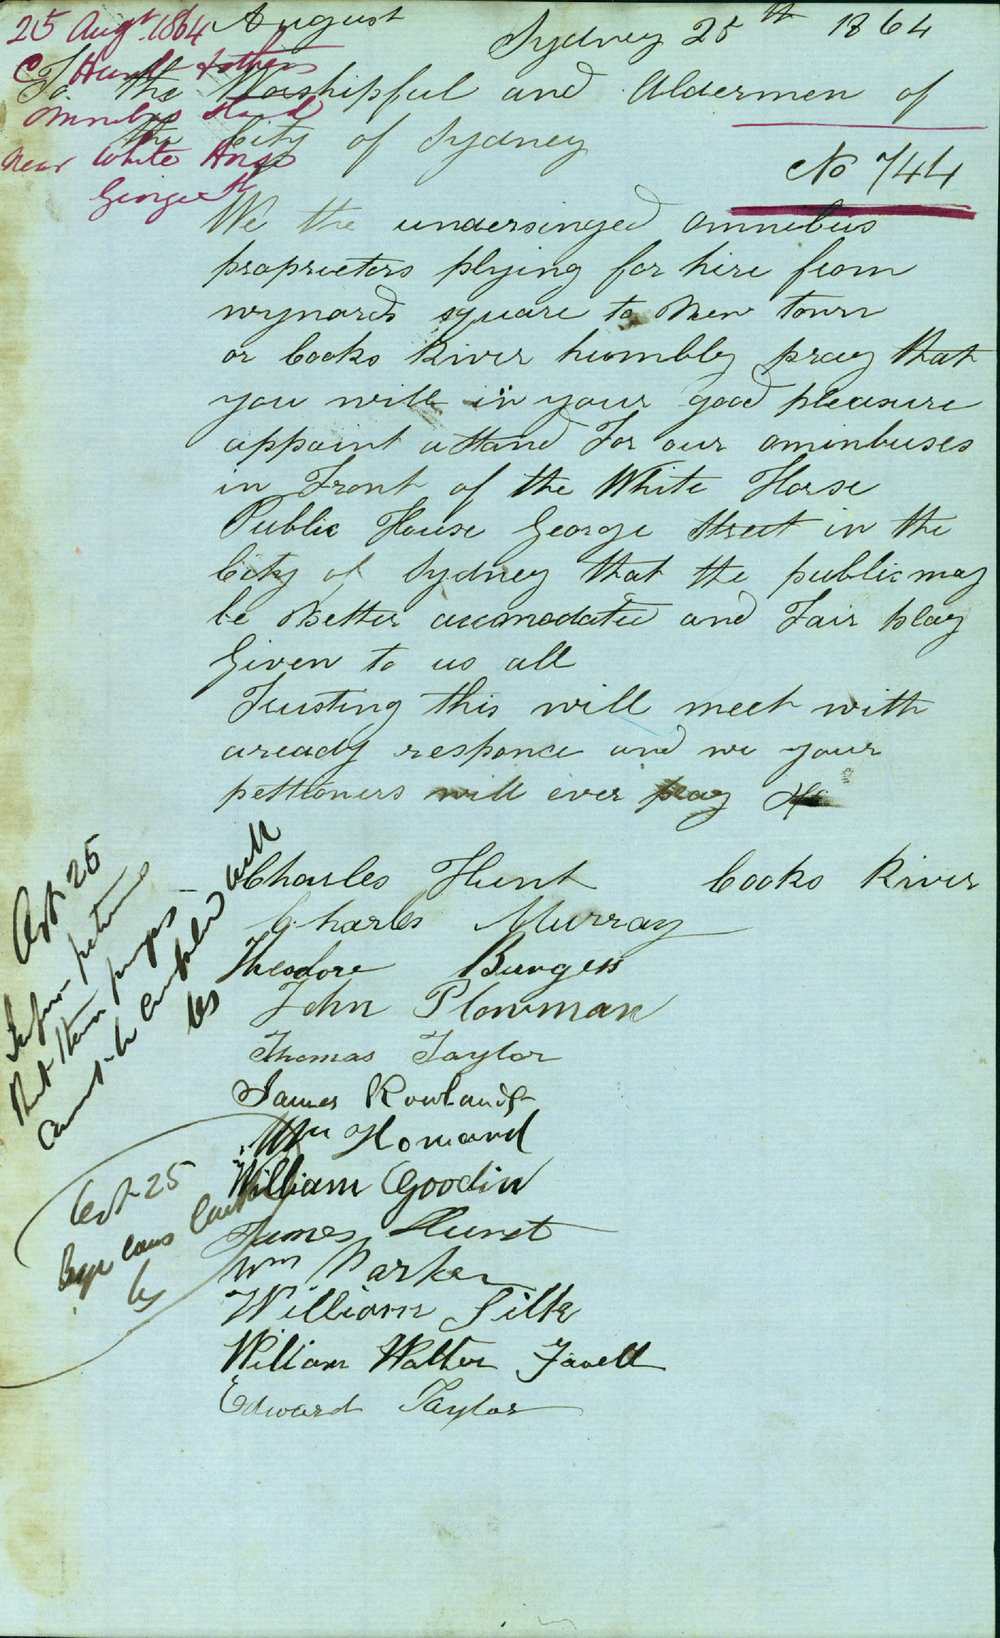 25 Augt. 1864
C Hunt & others
Omnibus Stand
Near White Horse
George St
August Sydney 25th 1864
To the Worshipful and Aldermen of
the City of Sydney
No 744
We the undersinged omnibus
proprietors plying for hire from
wynards square to New town
or Cooks River humbly pray that
you will in your good pleasure
appoint a Stand For our ominbuses
in Front of the White Horse
Public House George Street in the
City of Sydney that the public may
be Better acomodated and Fair play
Given to us all
Trusting this will meet with
aready responce and we your
pettioners will ever pray &c
Charles Hunt Cooks River
Charles Murray
Theodore Burgess
John Plowman
Thomas Taylor
James Rowlands
Wm Howard
William Goodin
James Hurst
Wm Parker
William Silk
William Walter Favell
Edward Taylor
Inform petitioners
that their prayer
cannot be complied with
Oct 25
Bye Laws